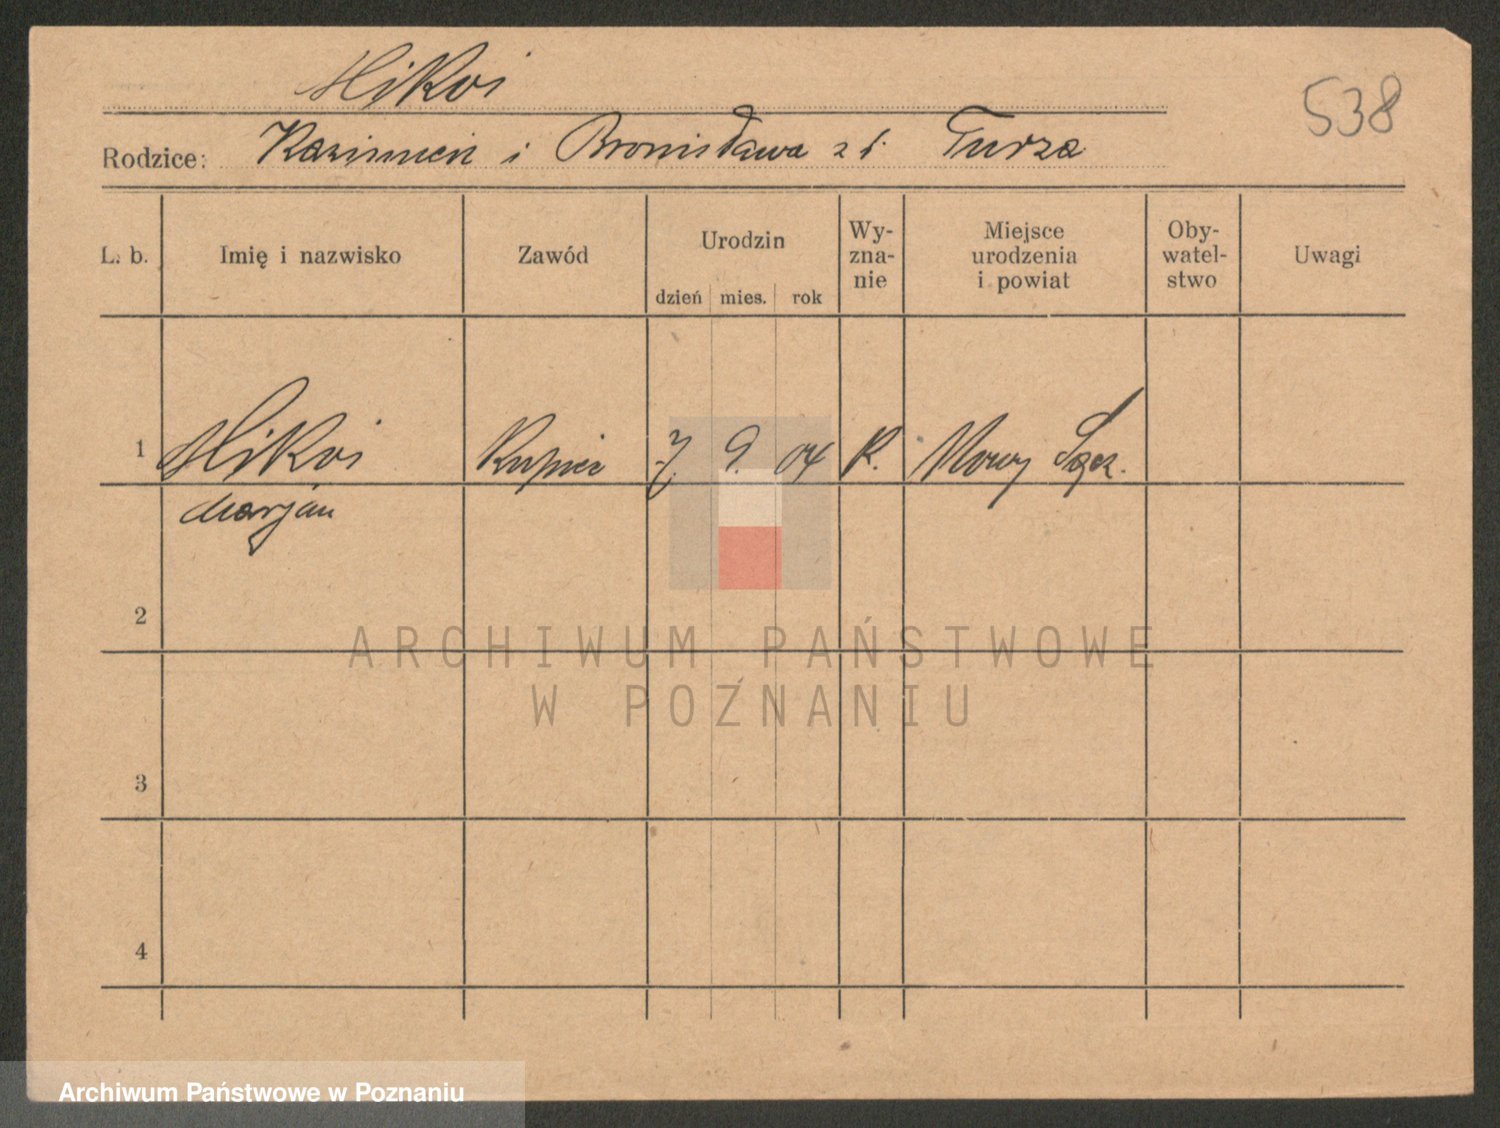 538
Rodzice: Kazimierz i Bronisława z d. Turza
L. b. Imię i nazwisko Zawód Urodzin Wy-zna-nie Miejsce urodzenia i powiat Oby-watel-stwo Uwagi
dzień mies. rok
1 Kupiec 7. 9. 04 R. Nowy Sącz.
Marjan
2
3
4
ARCHIWUM PAŃSTWOWE
W POZNANIU
Archiwum Państwowe w Poznaniu